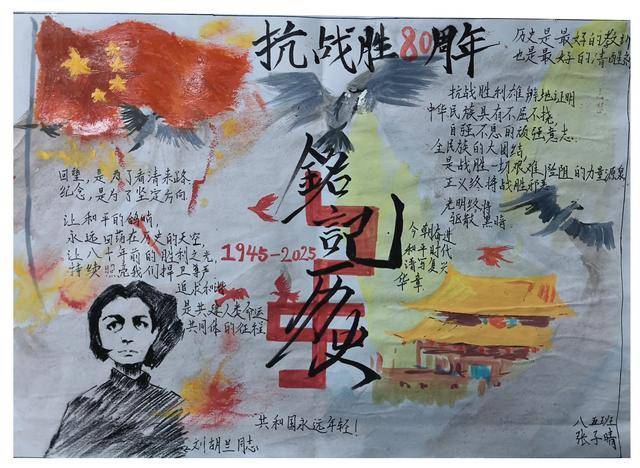 抗战胜80周年
历史是最好的教科
也是最好的清醒
抗战胜利雄辩地证明
中华民族具有不屈不挠,
自强不息的顽强意志.
全民族的大团结,
是战胜一切艰难险阻的力量源泉
正义终将战胜邪恶
光明终将
驱散黑暗
今朝奋进
和平时代
谱写复兴
华章.
回望,是为了看清来路.
纪念,是为了坚定方向.
让和平的钟响
永远回荡在历史的天空,
让八十年前的胜利之光
持续照亮我们捍卫尊严
追求和平
是共建人类命运
共同体的征程
1945-2025
銘記历史
共和国永远年轻!
刘胡兰同志
八五班
张子晴